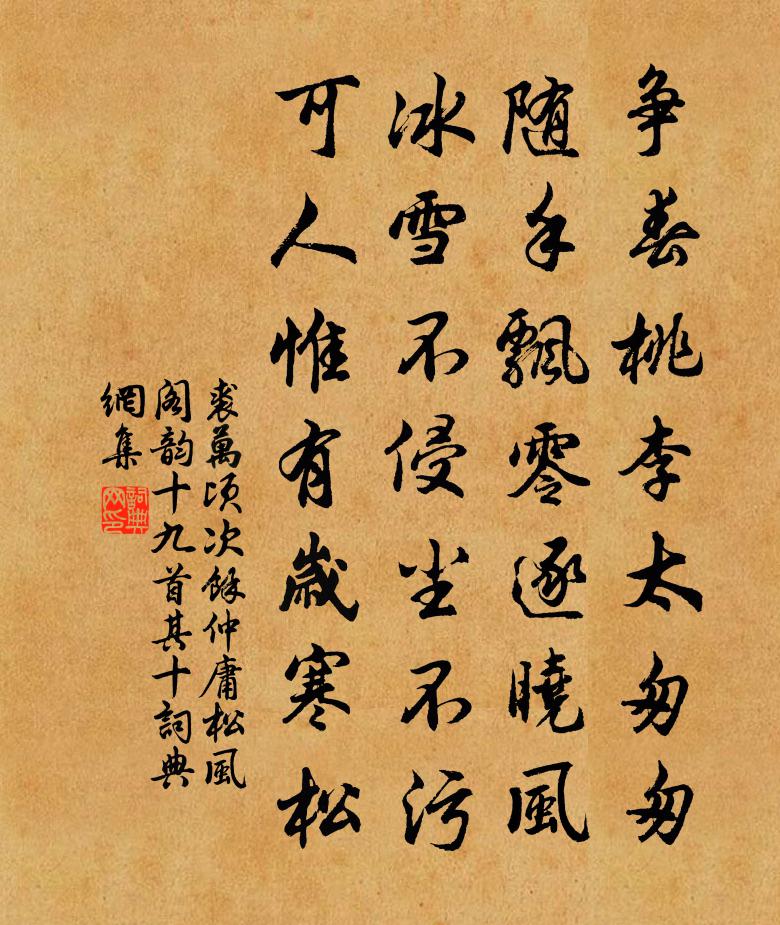 争春桃李太匆匆
随手飄零逐曉風
冰雪不侵尘不污
可人惟有歲寒松
裘萬頃次餘仲庸松風
閣韵十九首其十詞典
網集
詞典網印